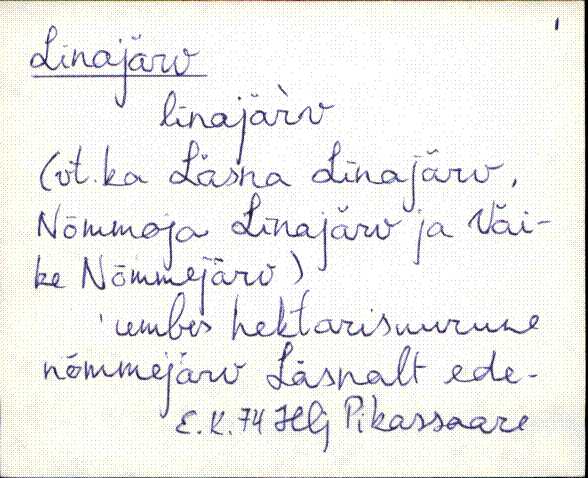 Linajärv
linajär̀v
(vt. ka Läsna Linajärv,
Nõmmoja Linajärv ja Väi-
ke Nõmmejärv)
'umbes hektarisuurune
nõmmejärv Läsnalt ede-
E.K. 74 Pikassaare